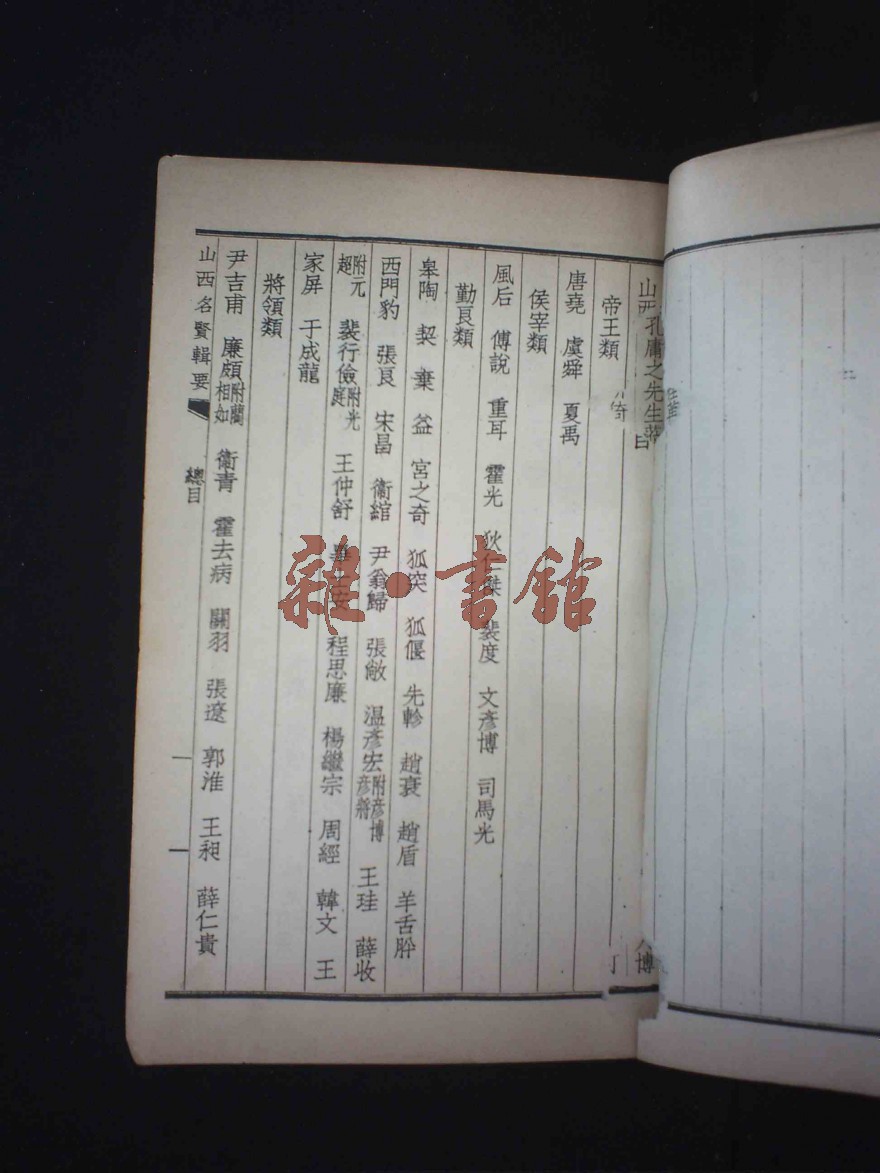 山西孔庸之先生
帝王類
唐堯 虞舜 夏禹
侯宰類
風后 傅說 重耳 霍光 狄仁傑 裴度 文彥博 司馬光
勤良類
皋陶 契 棄 益 宮之奇 狐突 狐偃 先軫 趙衰 趙盾 羊舌肸
西門豹 張良 宋昌 衞綰 尹翁歸 張敞 温彥宏附彥博彥將 王珪 薛收
附元超 裴行儉附光庭 王仲舒 程思廉 楊繼宗 周經 韓文 王
家屏 于成龍
將領類
尹吉甫 廉頗附藺相如 衞青 霍去病 關羽 張遼 郭淮 王昶 薛仁貴
山西名賢輯要 總目
雜·書館